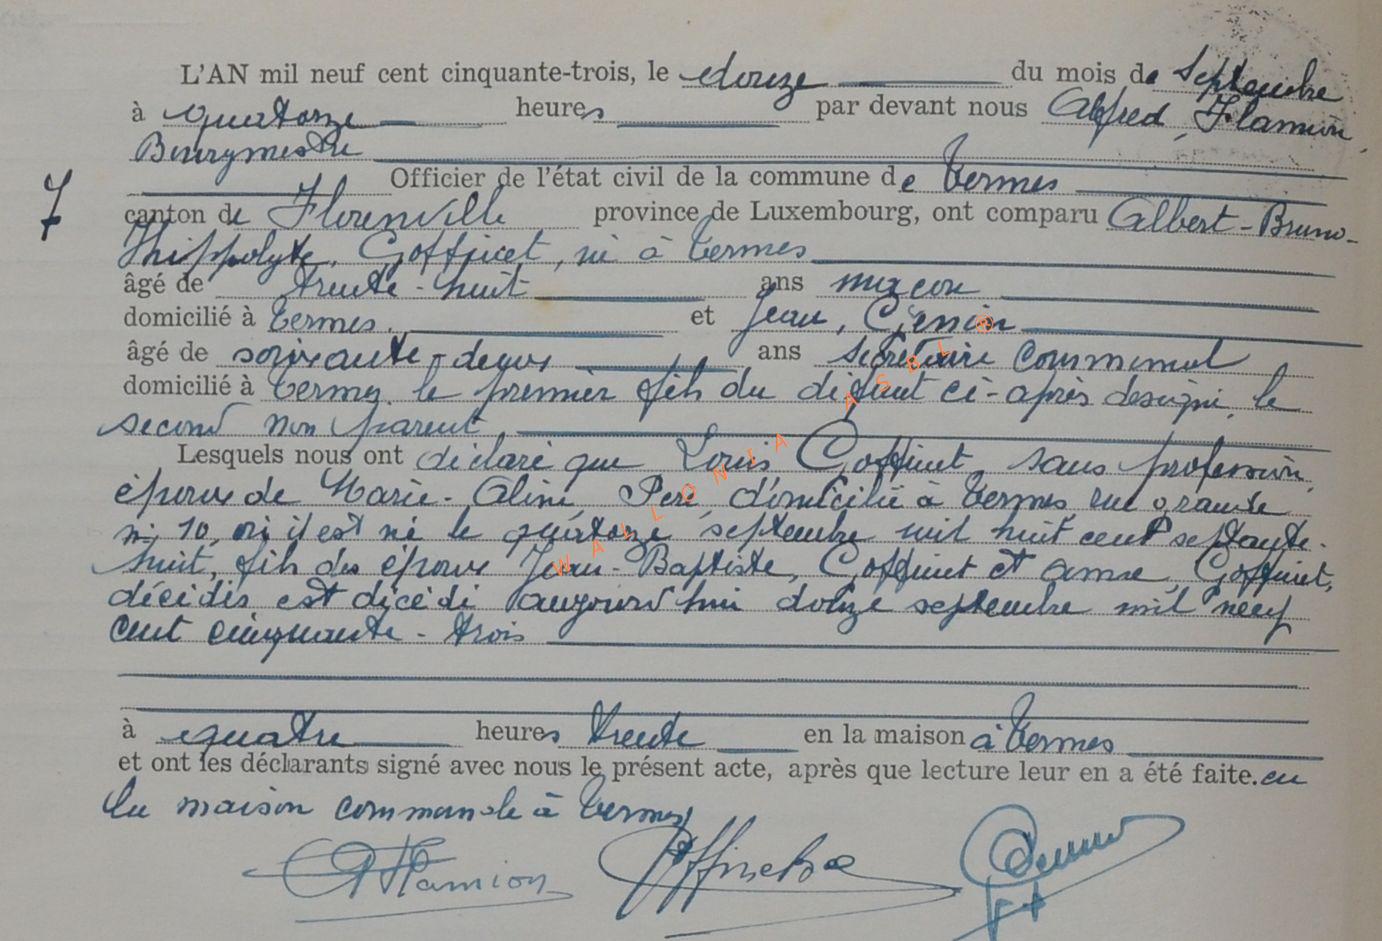 L'AN mil neuf cent cinquante-trois, le douze du mois de Septembre
à quatorze heures par devant nous Alfred, Flamion,
Bourgmestre
7 Officier de l'état civil de la commune de Termes
canton de Florenville province de Luxembourg, ont comparu Albert-Bruno-
Hippolyte, Goffinet, né à Termes
âgé de trente-huit ans maçon
domicilié à Termes. et Jean,
âgé de soixante-deux ans secrétaire communal
domicilié à Termes, le premier fils du défunt ci-après désigné, le
second non parent
Lesquels nous ont déclaré que Louis Goffinet, sans profession,
époux de Marie-Aline, domicilié à Termes rue grande
n° 10, où il est né le quatorze septembre mil huit cent septante-
huit, fils des époux Jean-Baptiste, Goffinet et Goffinet,
décédés, est décédé aujourd'hui douze septembre mil neuf
cent cinquante-trois
à quatre heures trente en la maison à Termes
et ont les déclarants signé avec nous le présent acte, après que lecture leur en a été faite. en
la maison communale à Termes
AFlamion Goffinet
WALLONIA ASBL ©